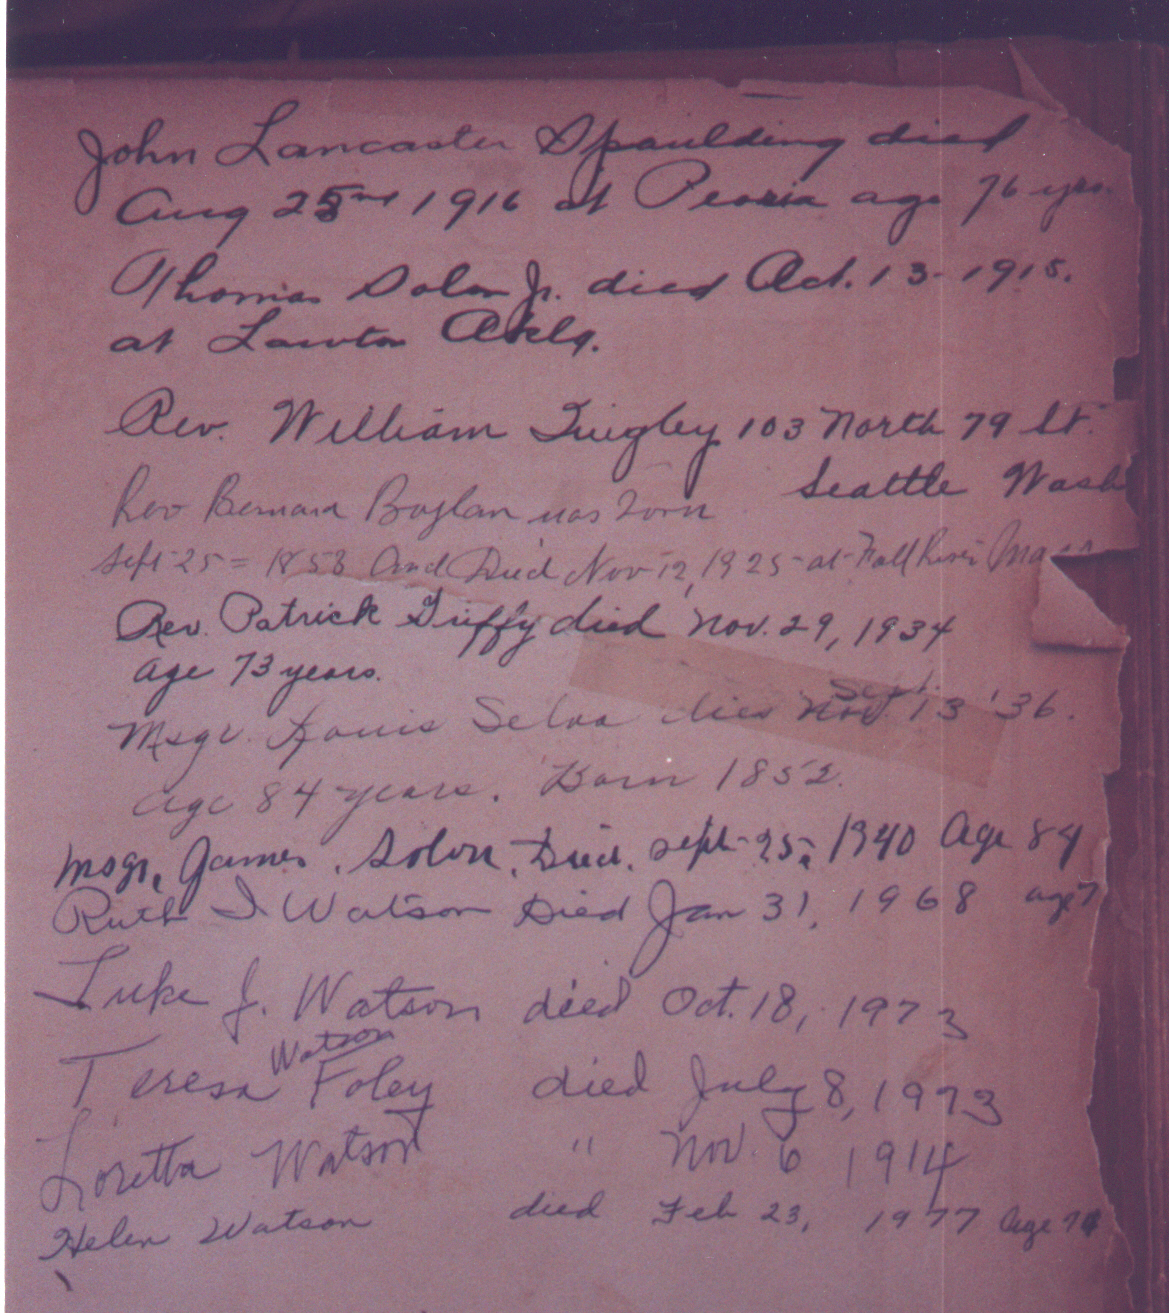 John Lancaster Spaulding died
Aug 25 1916 at Peoria age 76 yrs.
Thomas Solon Jr. died Oct. 13 - 1915.
at Lawton Okla.
Rev. William Quigley 103 North 79 St.
Seattle Wash
Rev Bernard Boylan was Born
Sept 25 = 1858 And Died Nov 12, 1925 - at Fall River Mass
Rev. Patrick Duffy died Nov. 29, 1934
age 73 years.
Sept.
Msgr. Louis Selva dies Nov. 13 '36.
age 84 years. Born 1852.
Msgr. James Solon. Died. Sept - 25, 1940 Age 84
Ruth I Watson Died Jan 31, 1968 age
Luke J. Watson died Oct. 18, 1973
Watson
Teresa Foley died July 8, 1973
Loretta Watson " Nov. 6 1914
Helen Watson died Feb 23, 1977 age